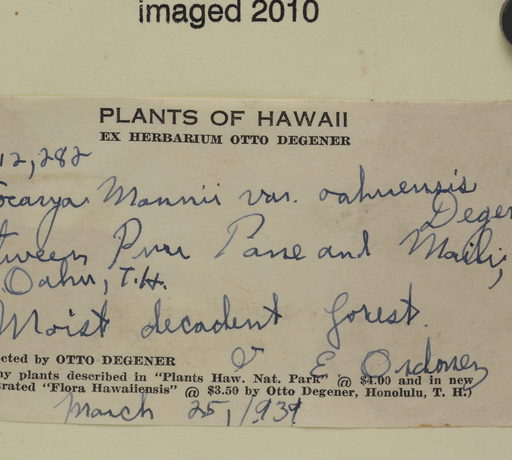 imaged 2010
PLANTS OF HAWAII
EX HERBARIUM OTTO DEGENER
12,282
ocarya Mannii var. oahuensis
Degen
tween Puu Pane and Maili,
Oahu, T.H.
Moist decadent forest.
cted by OTTO DEGENER & E Ordonez
ny plants described in "Plants Haw. Nat. Park" @ $4.00 and in new
trated "Flora Hawaiiensis" @ $3.50 by Otto Degener, Honolulu, T. H.)
March 25, 1939